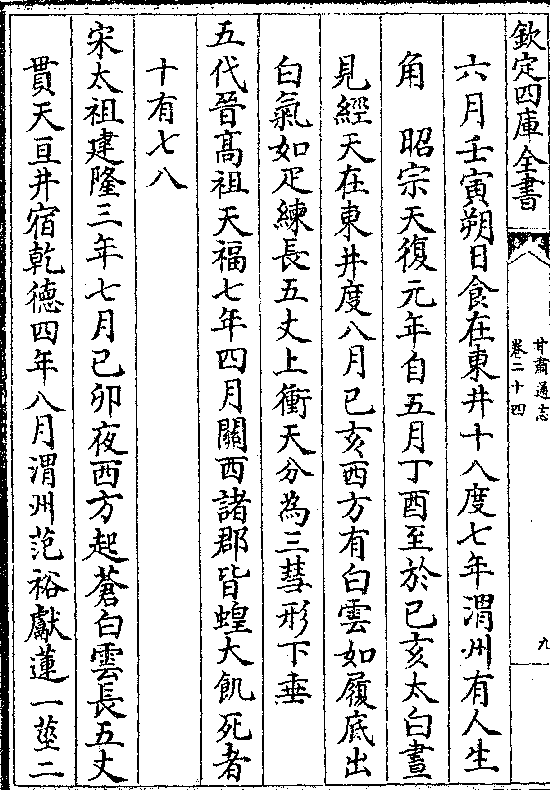 欽定四庫全書
甘肅通志
卷二十四
九
六月壬寅朔日食在東井十八度七年渭州有人生
角　昭宗天復元年自五月丁酉至於己亥太白晝
見經天在東井度八月己亥西方有白雲如履底出
白氣如疋練長五丈上衝天分為三彗形下垂
五代晉高祖天福七年四月關西諸郡皆蝗大飢死者
十有七八
宋太祖建隆三年七月己卯夜西方起蒼白雲長五丈
貫天亘井宿乾德四年八月渭州范裕獻蓮一莖二